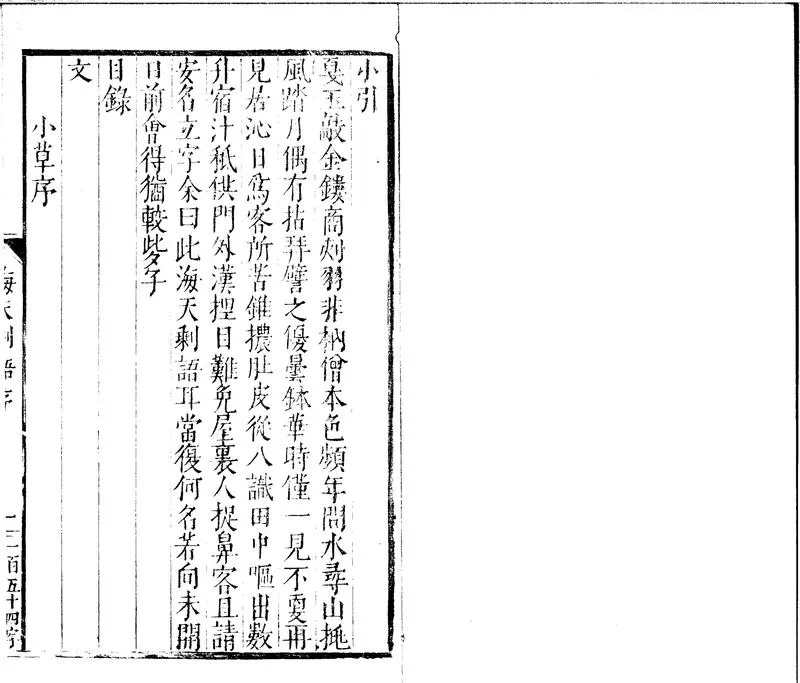 小引
戛玉敲金鏤商刻羽非衲僧本色頻年問水尋山拖
風踏月偶有拈弄譬之優曇鉢華時僅一見不耍再
見居沁日為客所苦錐攛肚皮從八識田中嘔出數
升宿汁秪供門外漢捏目難免屋裏人捉鼻客且請
安名立字余曰此海天剩語耳當復何名若向未開
口前會得猶較些子
目錄
文
小草序
海天剩語序
一二百五十四字